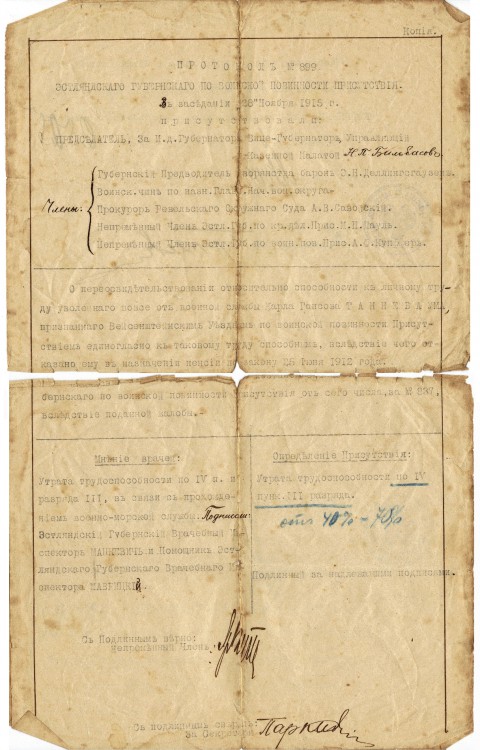 Копія.
ПРОТОКОЛЪ № 899
ЭСТЛЯНДСКАГО ГУБЕРНСКАГО ПО ВОИНСКОЙ ПОВИННОСТИ ПРИСУТСТВІЯ.
Въ засѣданіи "28" Ноября 1913 г.
присутствовали:
ПРЕДСѢДАТЕЛЬ, За И.д. Губернатора Вице-Губернатора, Управляющій
Казенной Палатой Н.П. Бильбасовъ
Члены:
Губернскій Предводитель Дворянства баронъ Э.Н. Деллингсгаузенъ
Воинск. чинъ по назн. Нач. воен. округа
Прокуроръ Ревельскаго Окружнаго Суда А.В. Савовскій.
Непремѣнный Членъ Эстл. Губ. по кр. дѣл. Прис. Н.Н. Пауль.
Непремѣнный Членъ Эстл. Губ. по воин. пов. Прис. А.Ф.
О переосвидѣтельствованіи относительно способности къ личному тру-
ду уволеннаго вовсе отъ военной службы Карла ТАННЕБАУМА,
признаннаго Везенбергскимъ Уѣзднымъ по воинской повинности Присут-
ствіемъ единогласно къ таковому труду способнымъ, вслѣдствіе чего от-
казано ему въ назначеніи пенсіи по закону 25 Іюня 1912 года.
бернскаго по воинской повинности присутствія отъ сего числа, за № 897,
вслѣдствіе поданной жалобы.
Мнѣніе врачей:
Утрата трудоспособности по IV п.
разряда III, въ связи съ прохожде-
ніемъ военно-морской службы. Подписали:
Эстляндскій Губернскій Врачебный Ин-
спекторъ и Помощникъ Эст-
ляндскаго Губернскаго Врачебнаго Ин-
спектора МАВРИЦКІЙ
Опредѣленіе Присутствія:
Утрата трудоспособности по IV
пунк. III разряда.
отъ 40% - 70%
Подлинный за надлежащими подписями.
Съ подлиннымъ вѣрно:
Непремѣнный Членъ
Съ подлиннымъ
за Секретаря